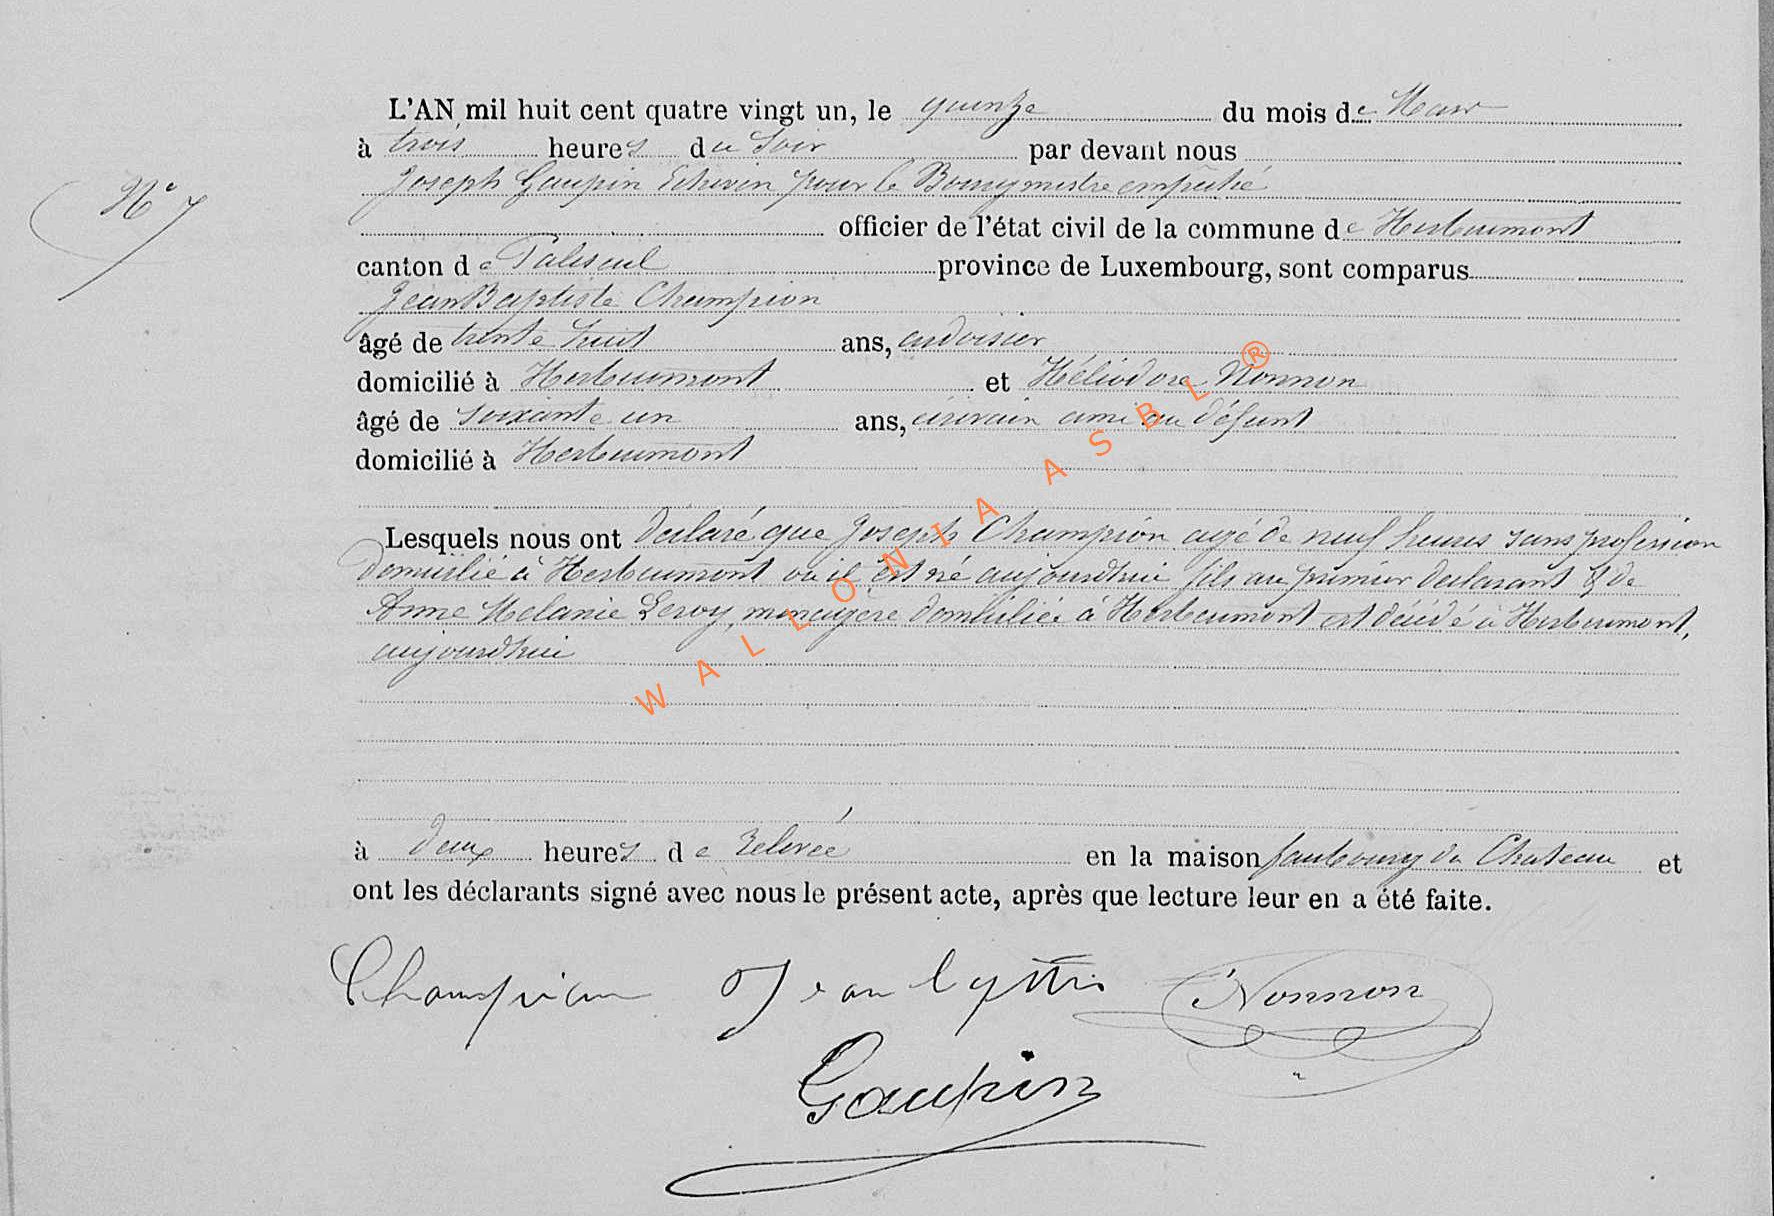 L'AN mil huit cent quatre vingt un, le quinze du mois de Mars
à trois heures du Soir par devant nous
Joseph Gaupin Echevin pour le Bourgmestre empêché
N° 7
officier de l'état civil de la commune de Herbeumont
canton de Paliseul province de Luxembourg, sont comparus
Jean Baptiste Champion
âgé de trente huit ans, ardoisier
domicilié à Herbeumont et Héliodore Nonnon
âgé de soixante un ans, écrivain ami au défunt
domicilié à Herbeumont
Lesquels nous ont declaré que Joseph Champion agé de neuf heures sans profession
domicilié à Herbeumont où il est né aujourdhui fils au premier declarant & de
Anne Melanie Leroy, menagère domiciliée à Herbeumont est décédé à Herbeumont,
aujourdhui
à deux heures de Relevée en la maison faubourg du Chateau et
ont les déclarants signé avec nous le présent acte, après que lecture leur en a été faite.
Champion Jean Nonnon
Gaupin
WALLONIA ASBL ®